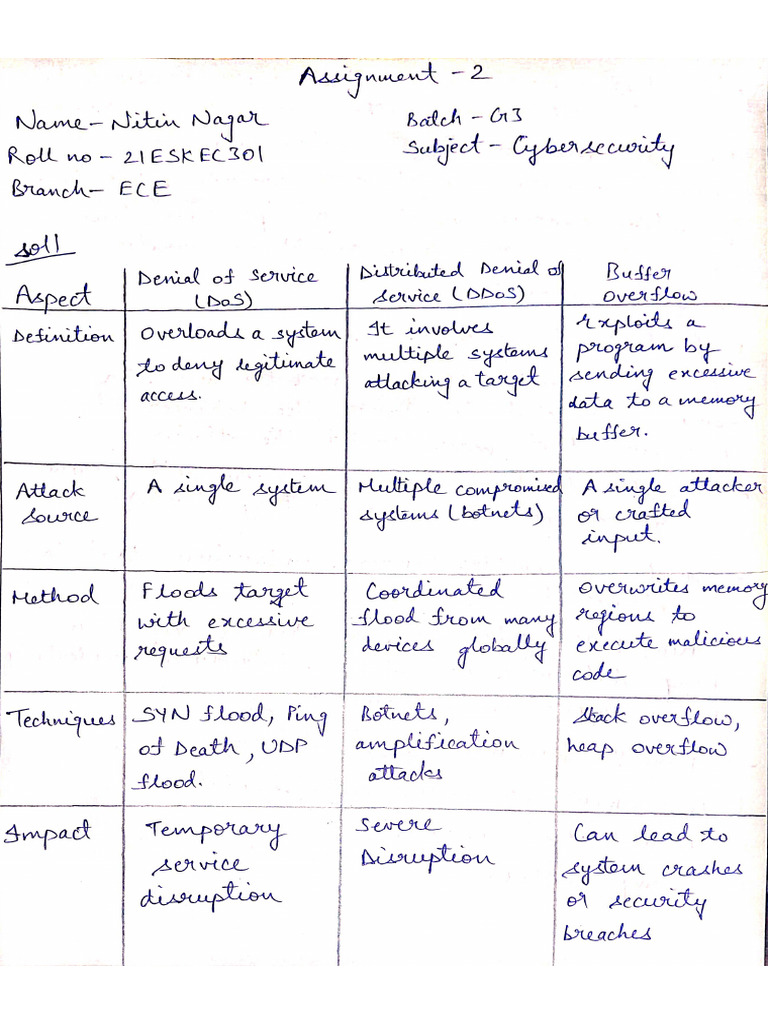 Assignment - 2
Name - Nitin Nagar
Batch - G3
Roll no - 21ESKEC301
Subject - Cybersecurity
Branch - ECE
sol1
Aspect
Denial of Service
(DoS)
Distributed Denial of
Service (DDoS)
Buffer
Overflow
Definition
Overloads a system
to deny legitimate
access.
It involves
multiple systems
attacking a target
Exploits a
program by
sending excessive
data to a memory
buffer.
Attack
Source
A single system
Multiple compromised
systems (botnets)
A single attacker
or crafted
input.
Method
Floods target
with excessive
requests
Coordinated
flood from many
devices globally
Overwrites memory
regions to
execute malicious
code
Techniques
SYN flood, Ping
of Death, UDP
flood.
Botnets,
amplification
attacks
Stack overflow,
heap overflow
Impact
Temporary
service
disruption
Severe
Disruption
Can lead to
system crashes
or security
breaches